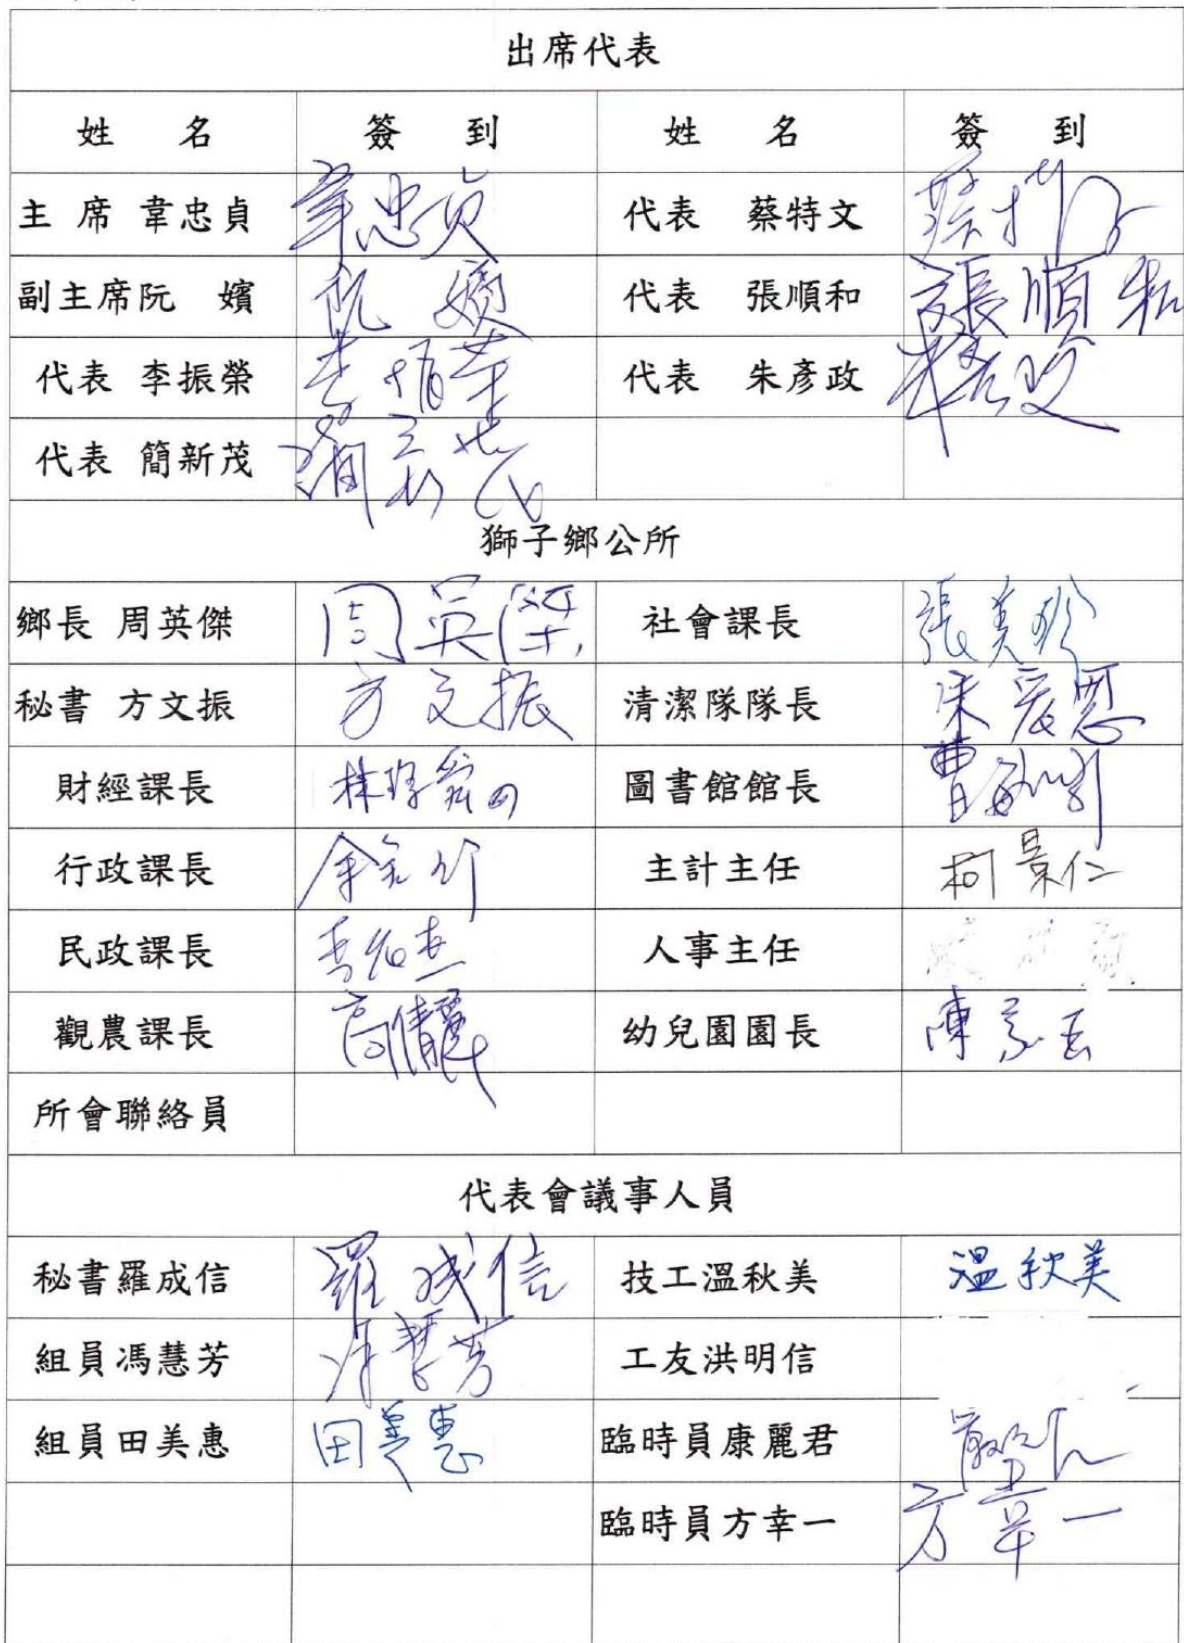 出席代表
姓 名 簽 到 姓 名 簽 到
主 席 韋忠貞 韋忠貞 代表 蔡特文 蔡特文
副主席阮 嬪 阮 嬪 代表 張順和 張順和
代表 李振榮 李振榮 代表 朱彥政 朱彥政
代表 簡新茂 簡新茂
獅子鄉公所
鄉長 周英傑 周英傑 社會課長 張美玲
秘書 方文振 方文振 清潔隊隊長 宋爰恩
財經課長 林 圖書館館長 曹
行政課長 余 主計主任 柯景仁
民政課長 李 人事主任
觀農課長 高倩麗 幼兒園園長 陳
所會聯絡員
代表會議事人員
秘書羅成信 羅成信 技工溫秋美 溫秋美
組員馮慧芳 馮慧芳 工友洪明信
組員田美惠 田美惠 臨時員康麗君
臨時員方幸一 方幸一